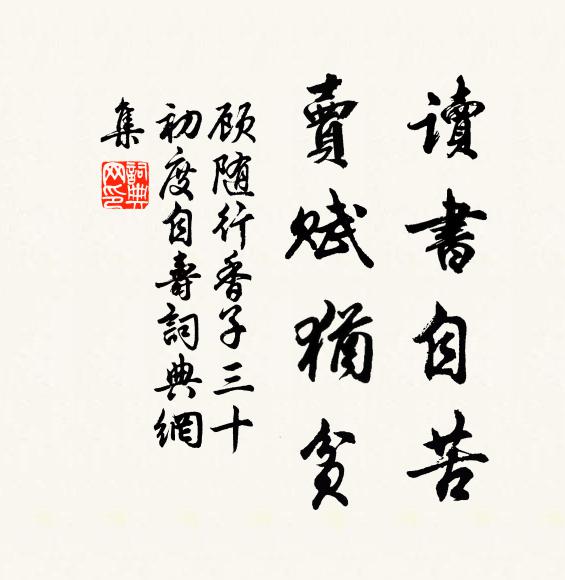 讀書自苦
賣賦猶貧
顾随行香子三十
初度自壽詞典網
集
詞典網印